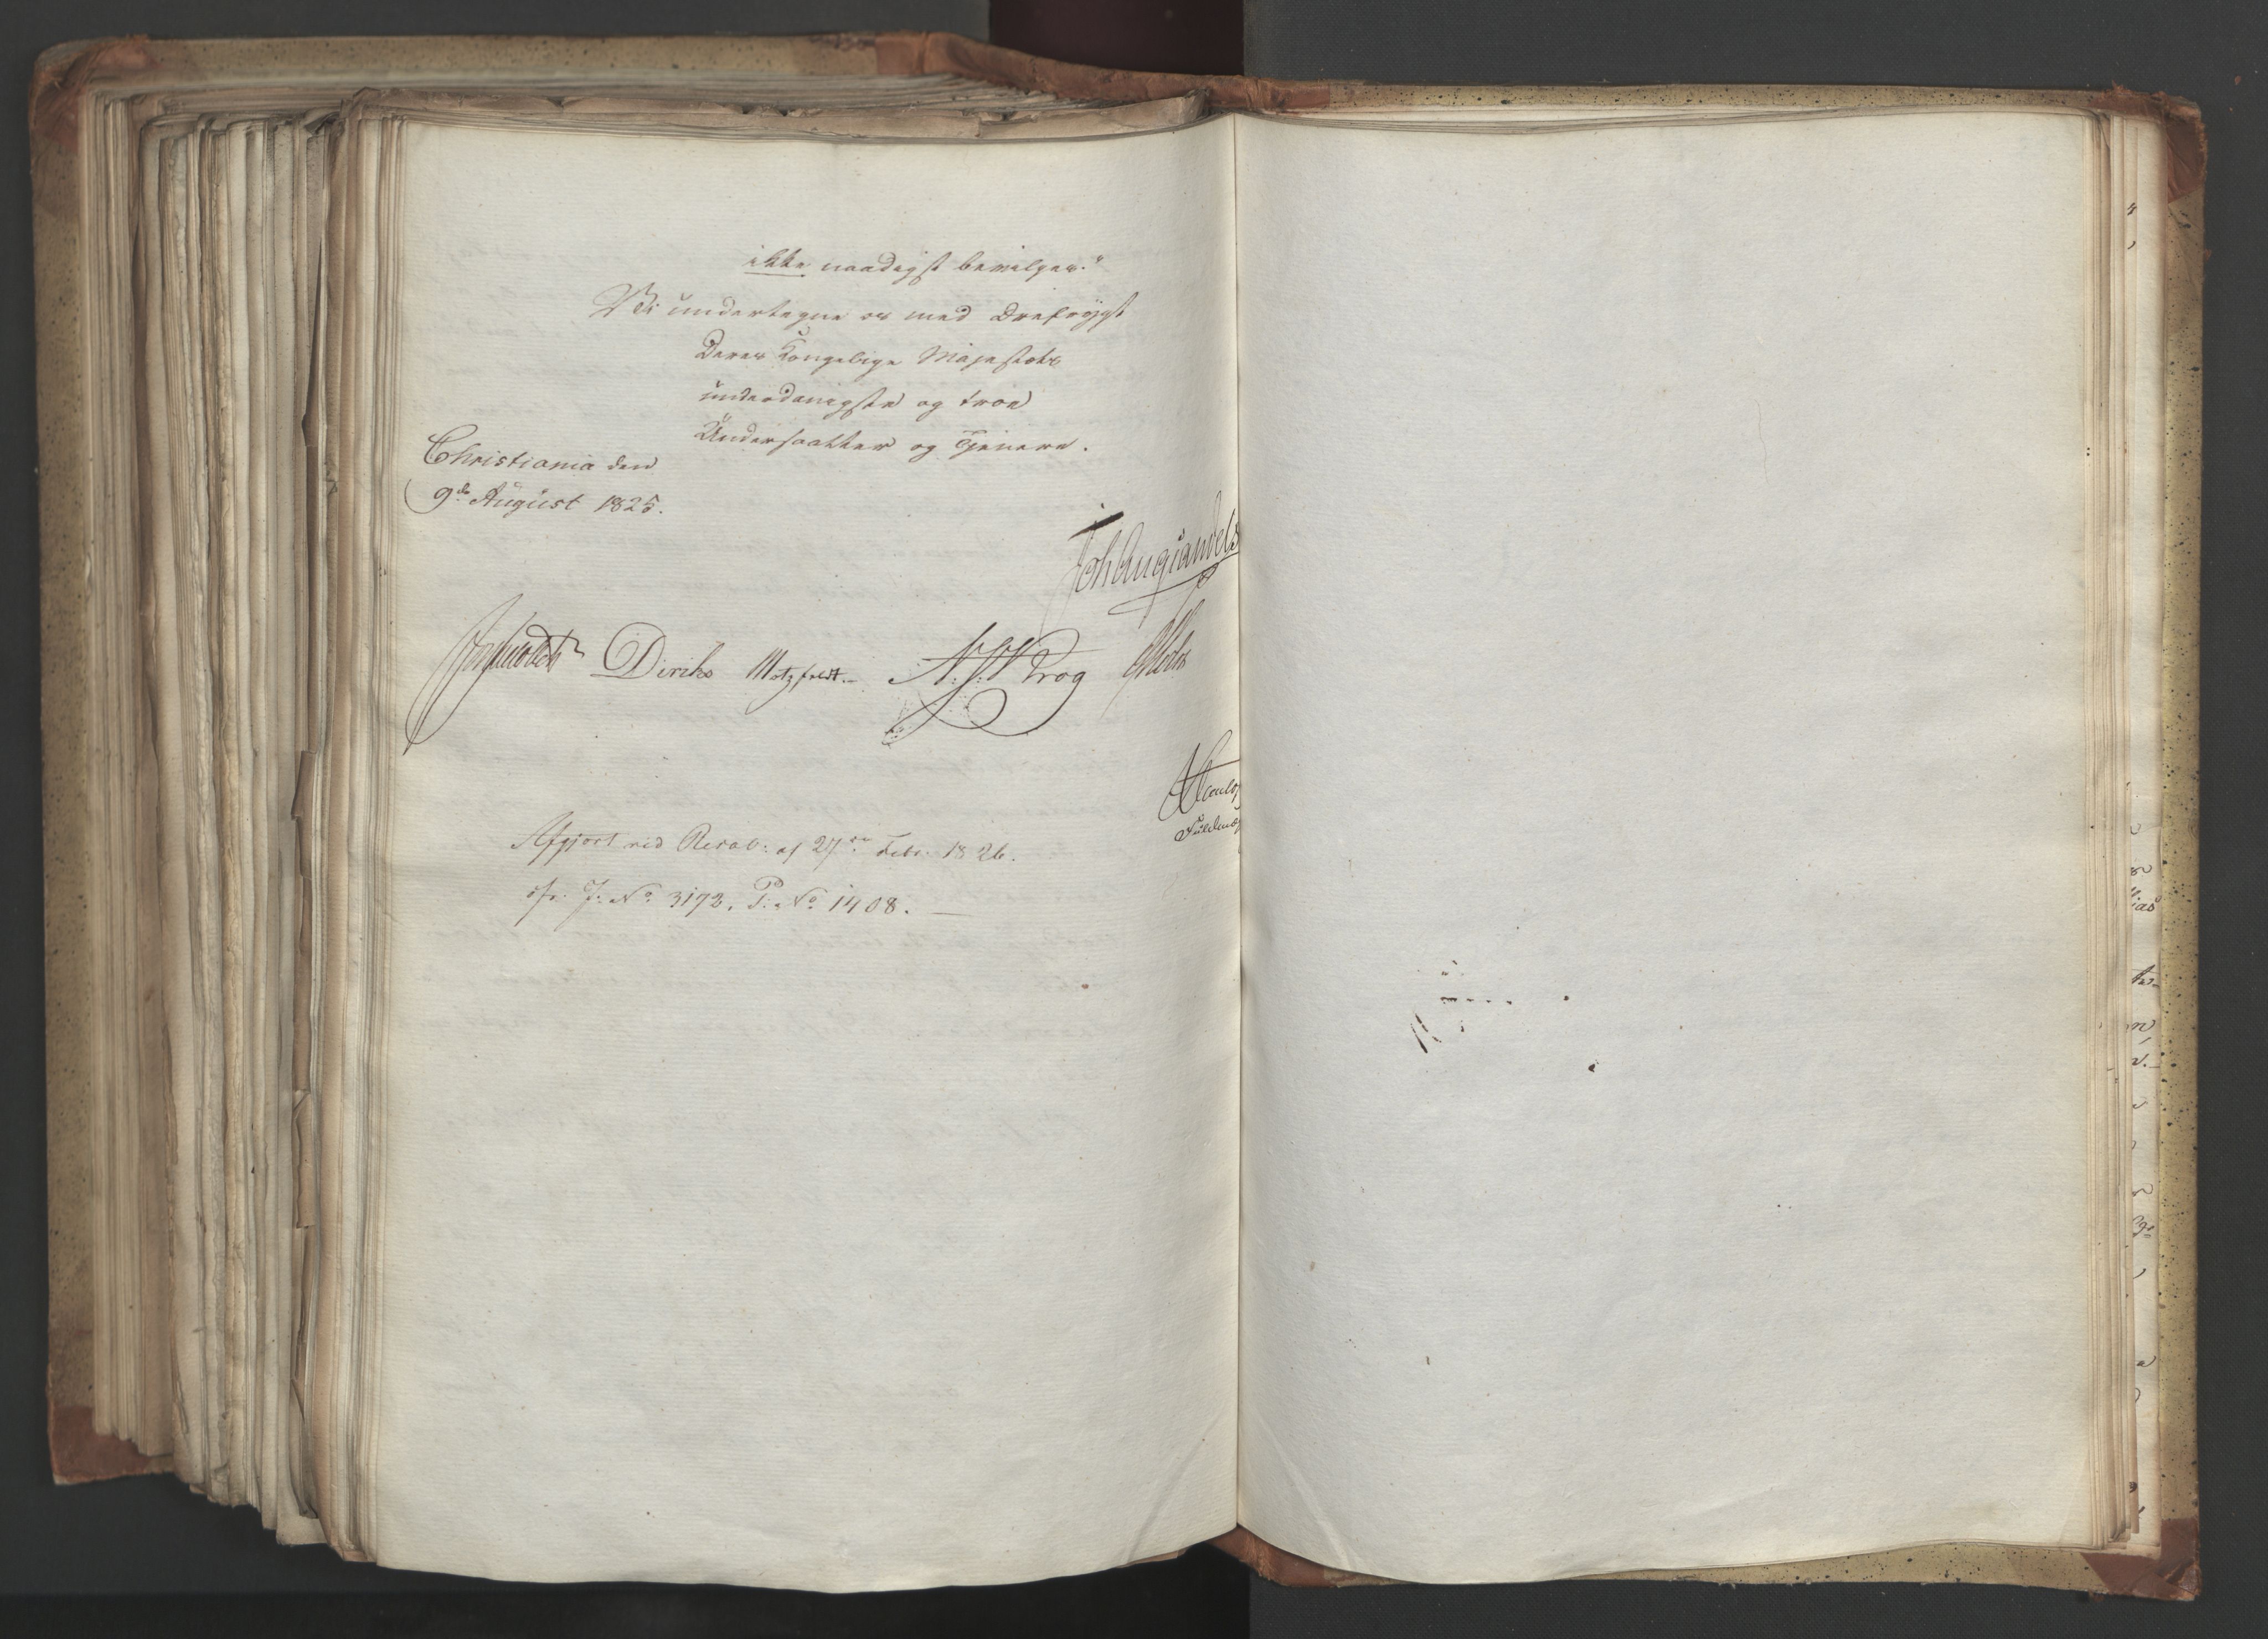 ikke naadigst bevilges."
Vi undertegne os med Ærefrygt
Deres Kongelige Majestæts
underdanigste og troe
Undersaatter og Tjenere.
Christiania den
9de August 1825.
Joh Aug Sandels
Diriks Motzfeldt. Krog
Afgjort ved Resol: af 27de Febr. 1826.
cfr. J: No 3172. P: No 1408. —